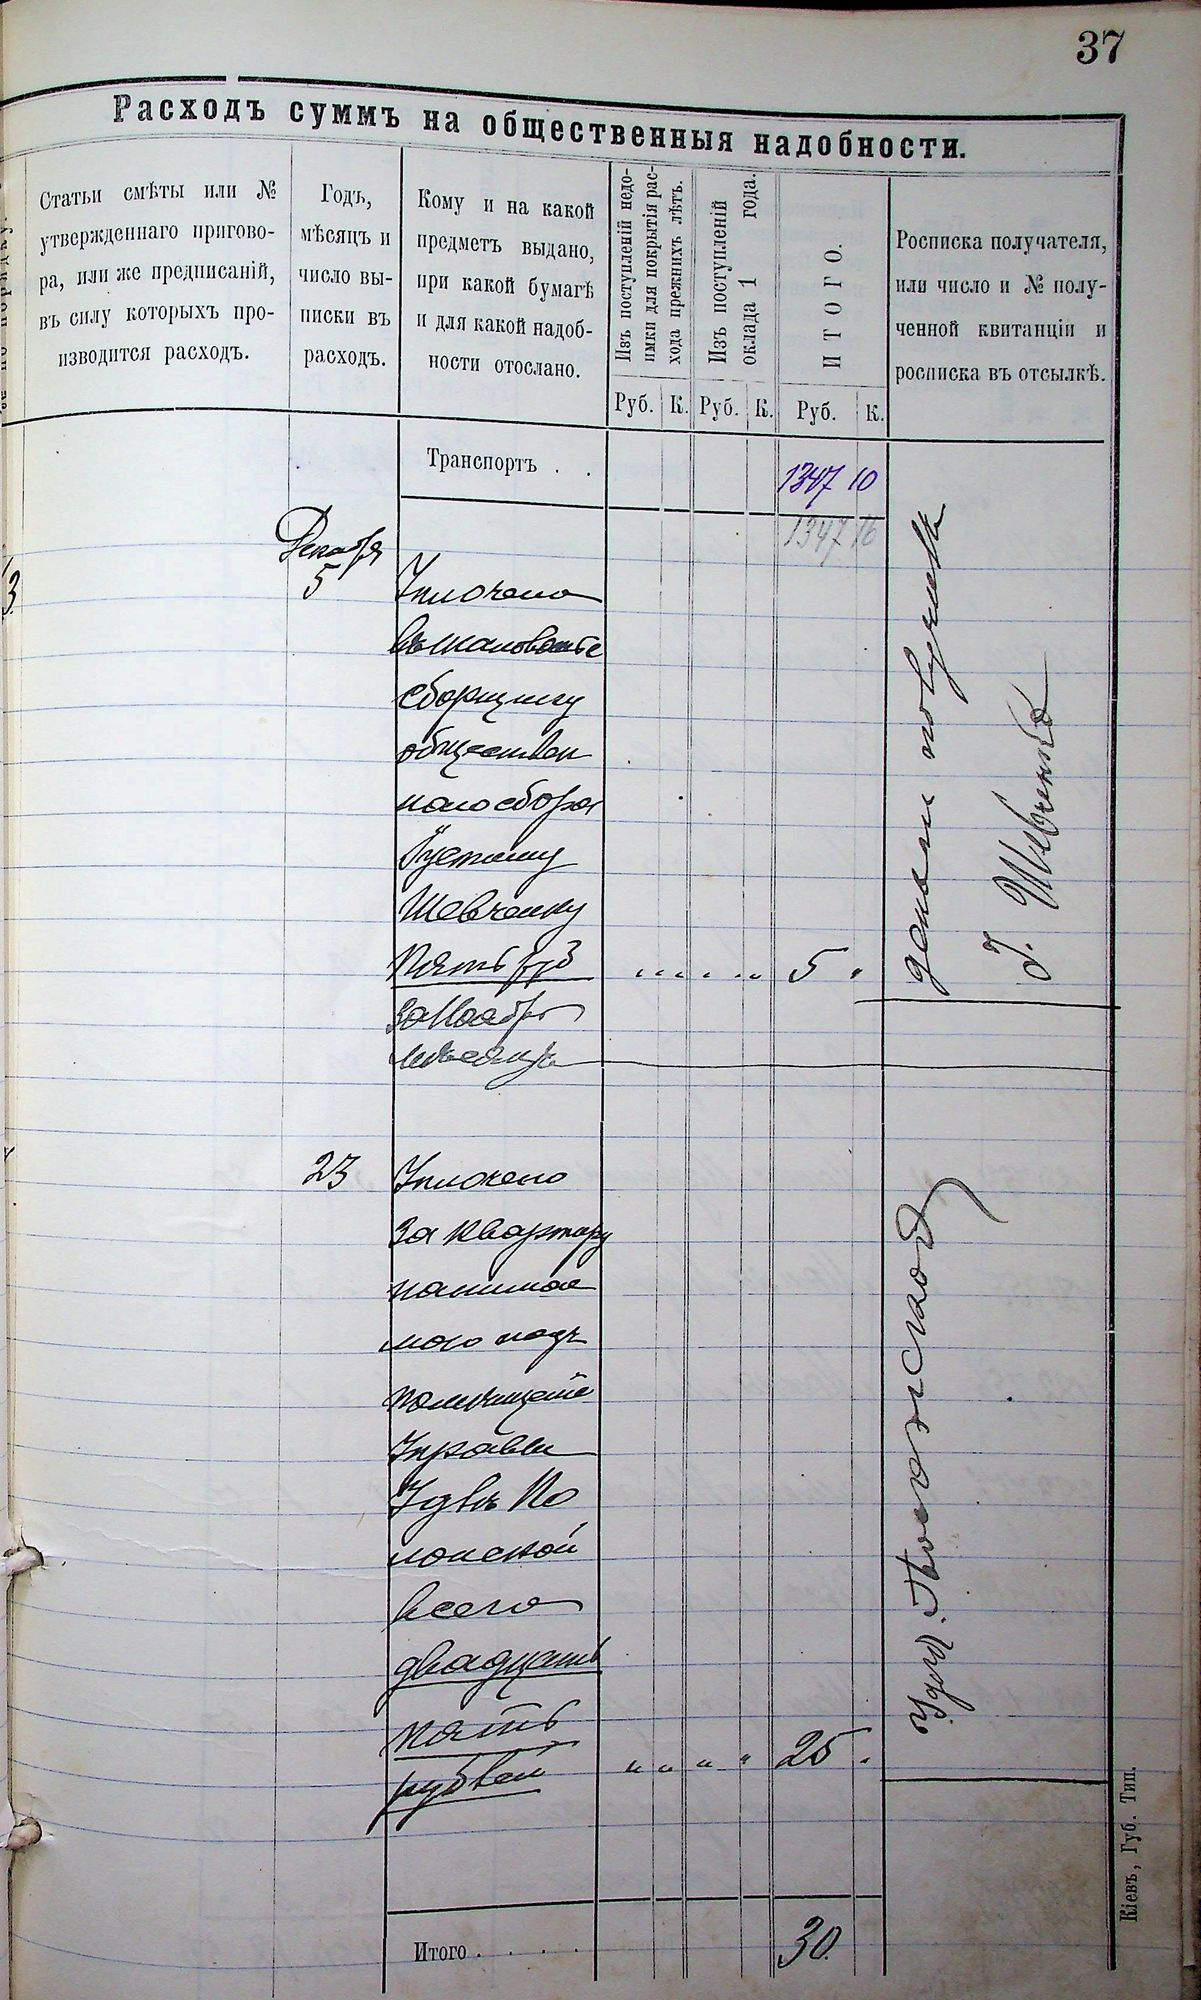 37
Расходъ суммъ на общественныя надобности.
Статьи смѣты или №
утвержденнаго пригово-
ра, или же предписаній,
въ силу которыхъ про-
изводится расходъ.
Годъ,
мѣсяцъ и
число вы-
писки въ
расходъ.
Кому и на какой
предметъ выдано,
при какой бумагѣ
и для какой надоб-
ности отослано.
Изъ поступленій недо-
имки для покрытія рас-
хода прежнихъ лѣтъ.
Изъ поступленій
оклада 1 года.
ИТОГО.
Росписка получателя,
или число и № полу-
ченной квитанціи и
росписка въ отсылкѣ.
Руб. К. Руб. К. Руб. К.
Транспортъ . . 1347 10
1347 10
Декабря
3 5 Уплочено
въ жалованье
сборщику
обществен
наго сбора
Густину
Шевченку
Пять руб 5
за Ноябрь
мѣсяцъ
деньги получилъ
Г. Шевченко
23 Уплочено
за квартиру
нанимае
мого подъ
помѣщеніе
Управы
Удвѣ По
лонской
всего
двадцать
пять
рублей 25 .
Итого . . . . 30
Кіевъ, Губ. Тип.